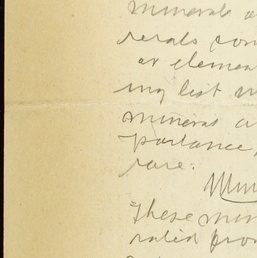 minerals a
erals con
or elemen
ing list m
minerals a
partance,
rare:
Min
These min
rated pro